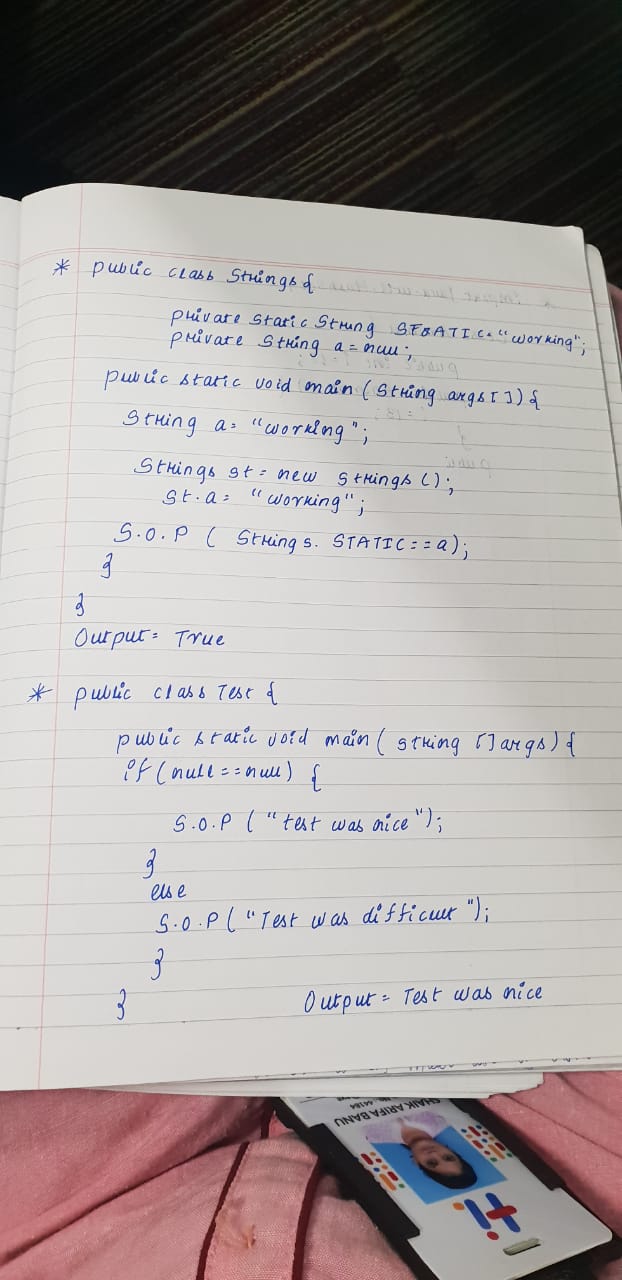 * public class Strings {
private static String STATIC = "working";
private String a = null;
public static void main (String args[]) {
String a = "working";
Strings st = new Strings ();
st.a = "working";
S.O.P ( Strings. STATIC == a);
}
}
Output = True
* public class Test {
public static void main ( string [] args) {
if (null == null) {
S.O.P ( "test was nice");
}
else
S.O.P ( "Test was difficult ");
}
}
Output = Test was nice
SHAIK ARIFA BANU
44184